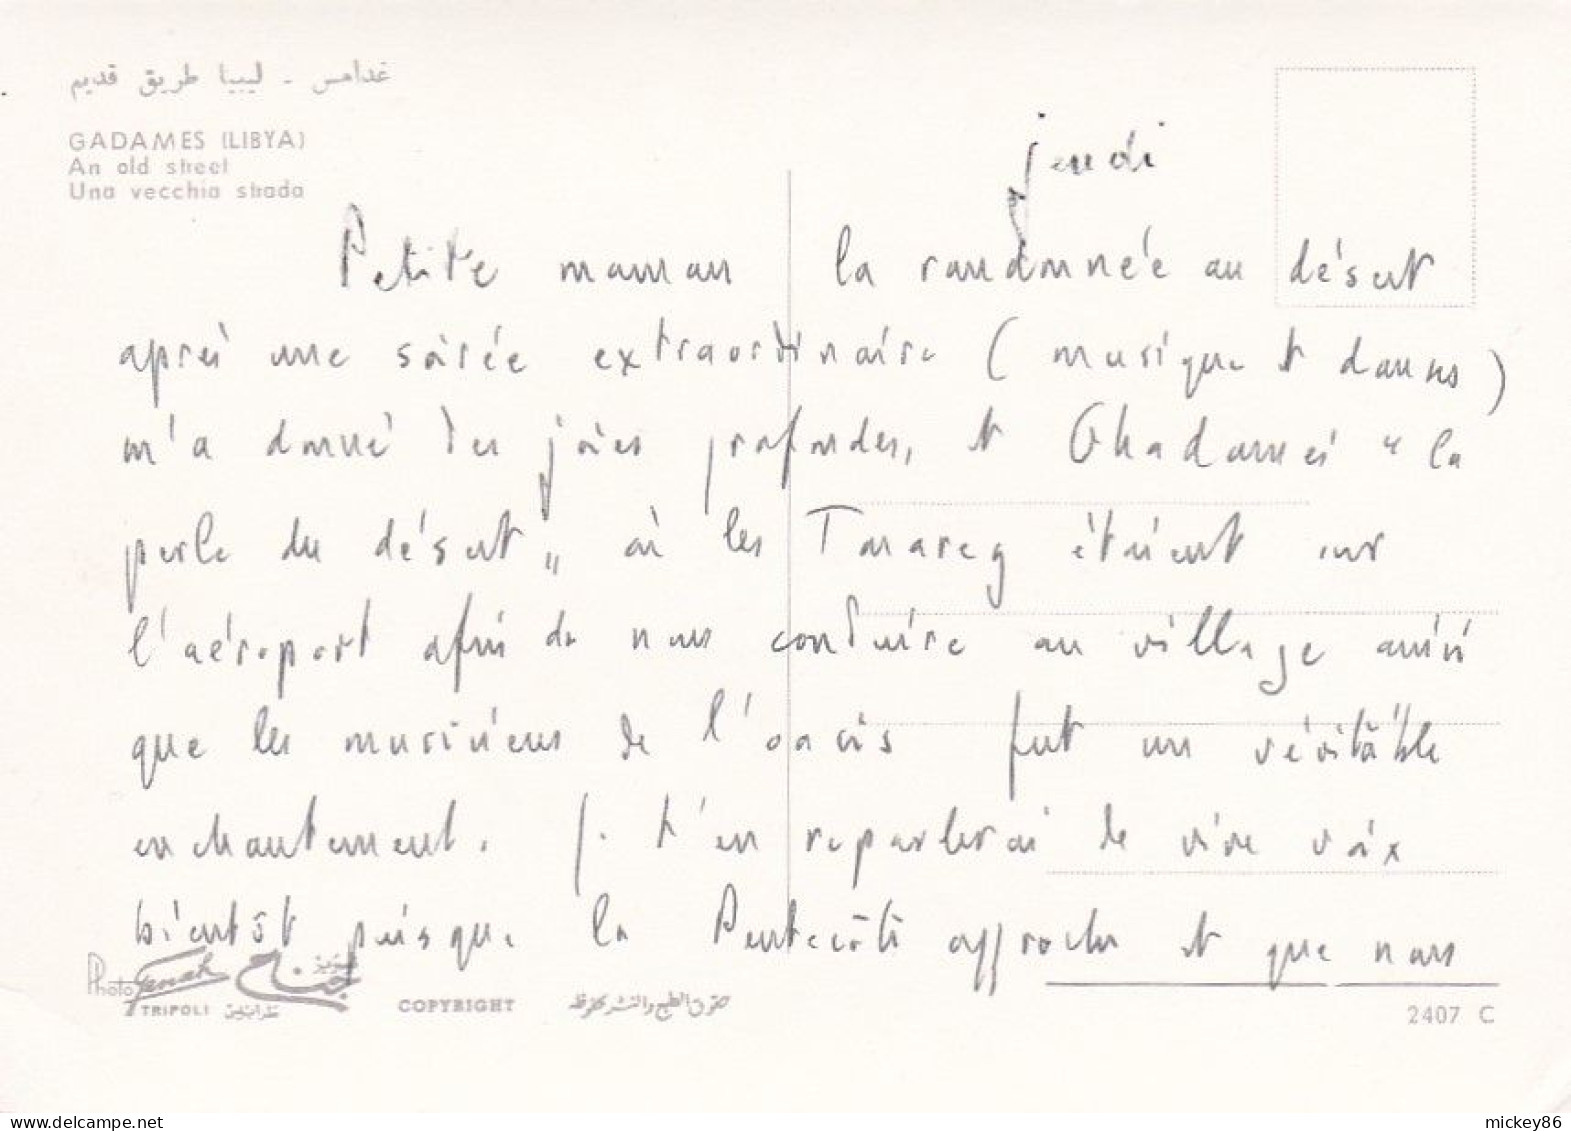 غدامس - ليبيا طريق قديم
GADAMES (LIBYA)
An old street
Una vecchia strada
jeudi
Petite maman la randonnée au désert
après une soirée extraordinaire (musique et danses)
m'a donné des joies profondes, et Ghadamès "la
perle du désert" où les Touareg étaient sur
l'aéroport afin de nous conduire au village ainsi
que les musiciens de l'oasis fut un véritable
enchantement. Je t'en reparlerai de vive voix
bientôt puisque la Pentecôte approche et que nous
Photo
جناح
TRIPOLI طرابلس
COPYRIGHT حقوق الطبع والنشر محفوظة
2407 C
mickey86